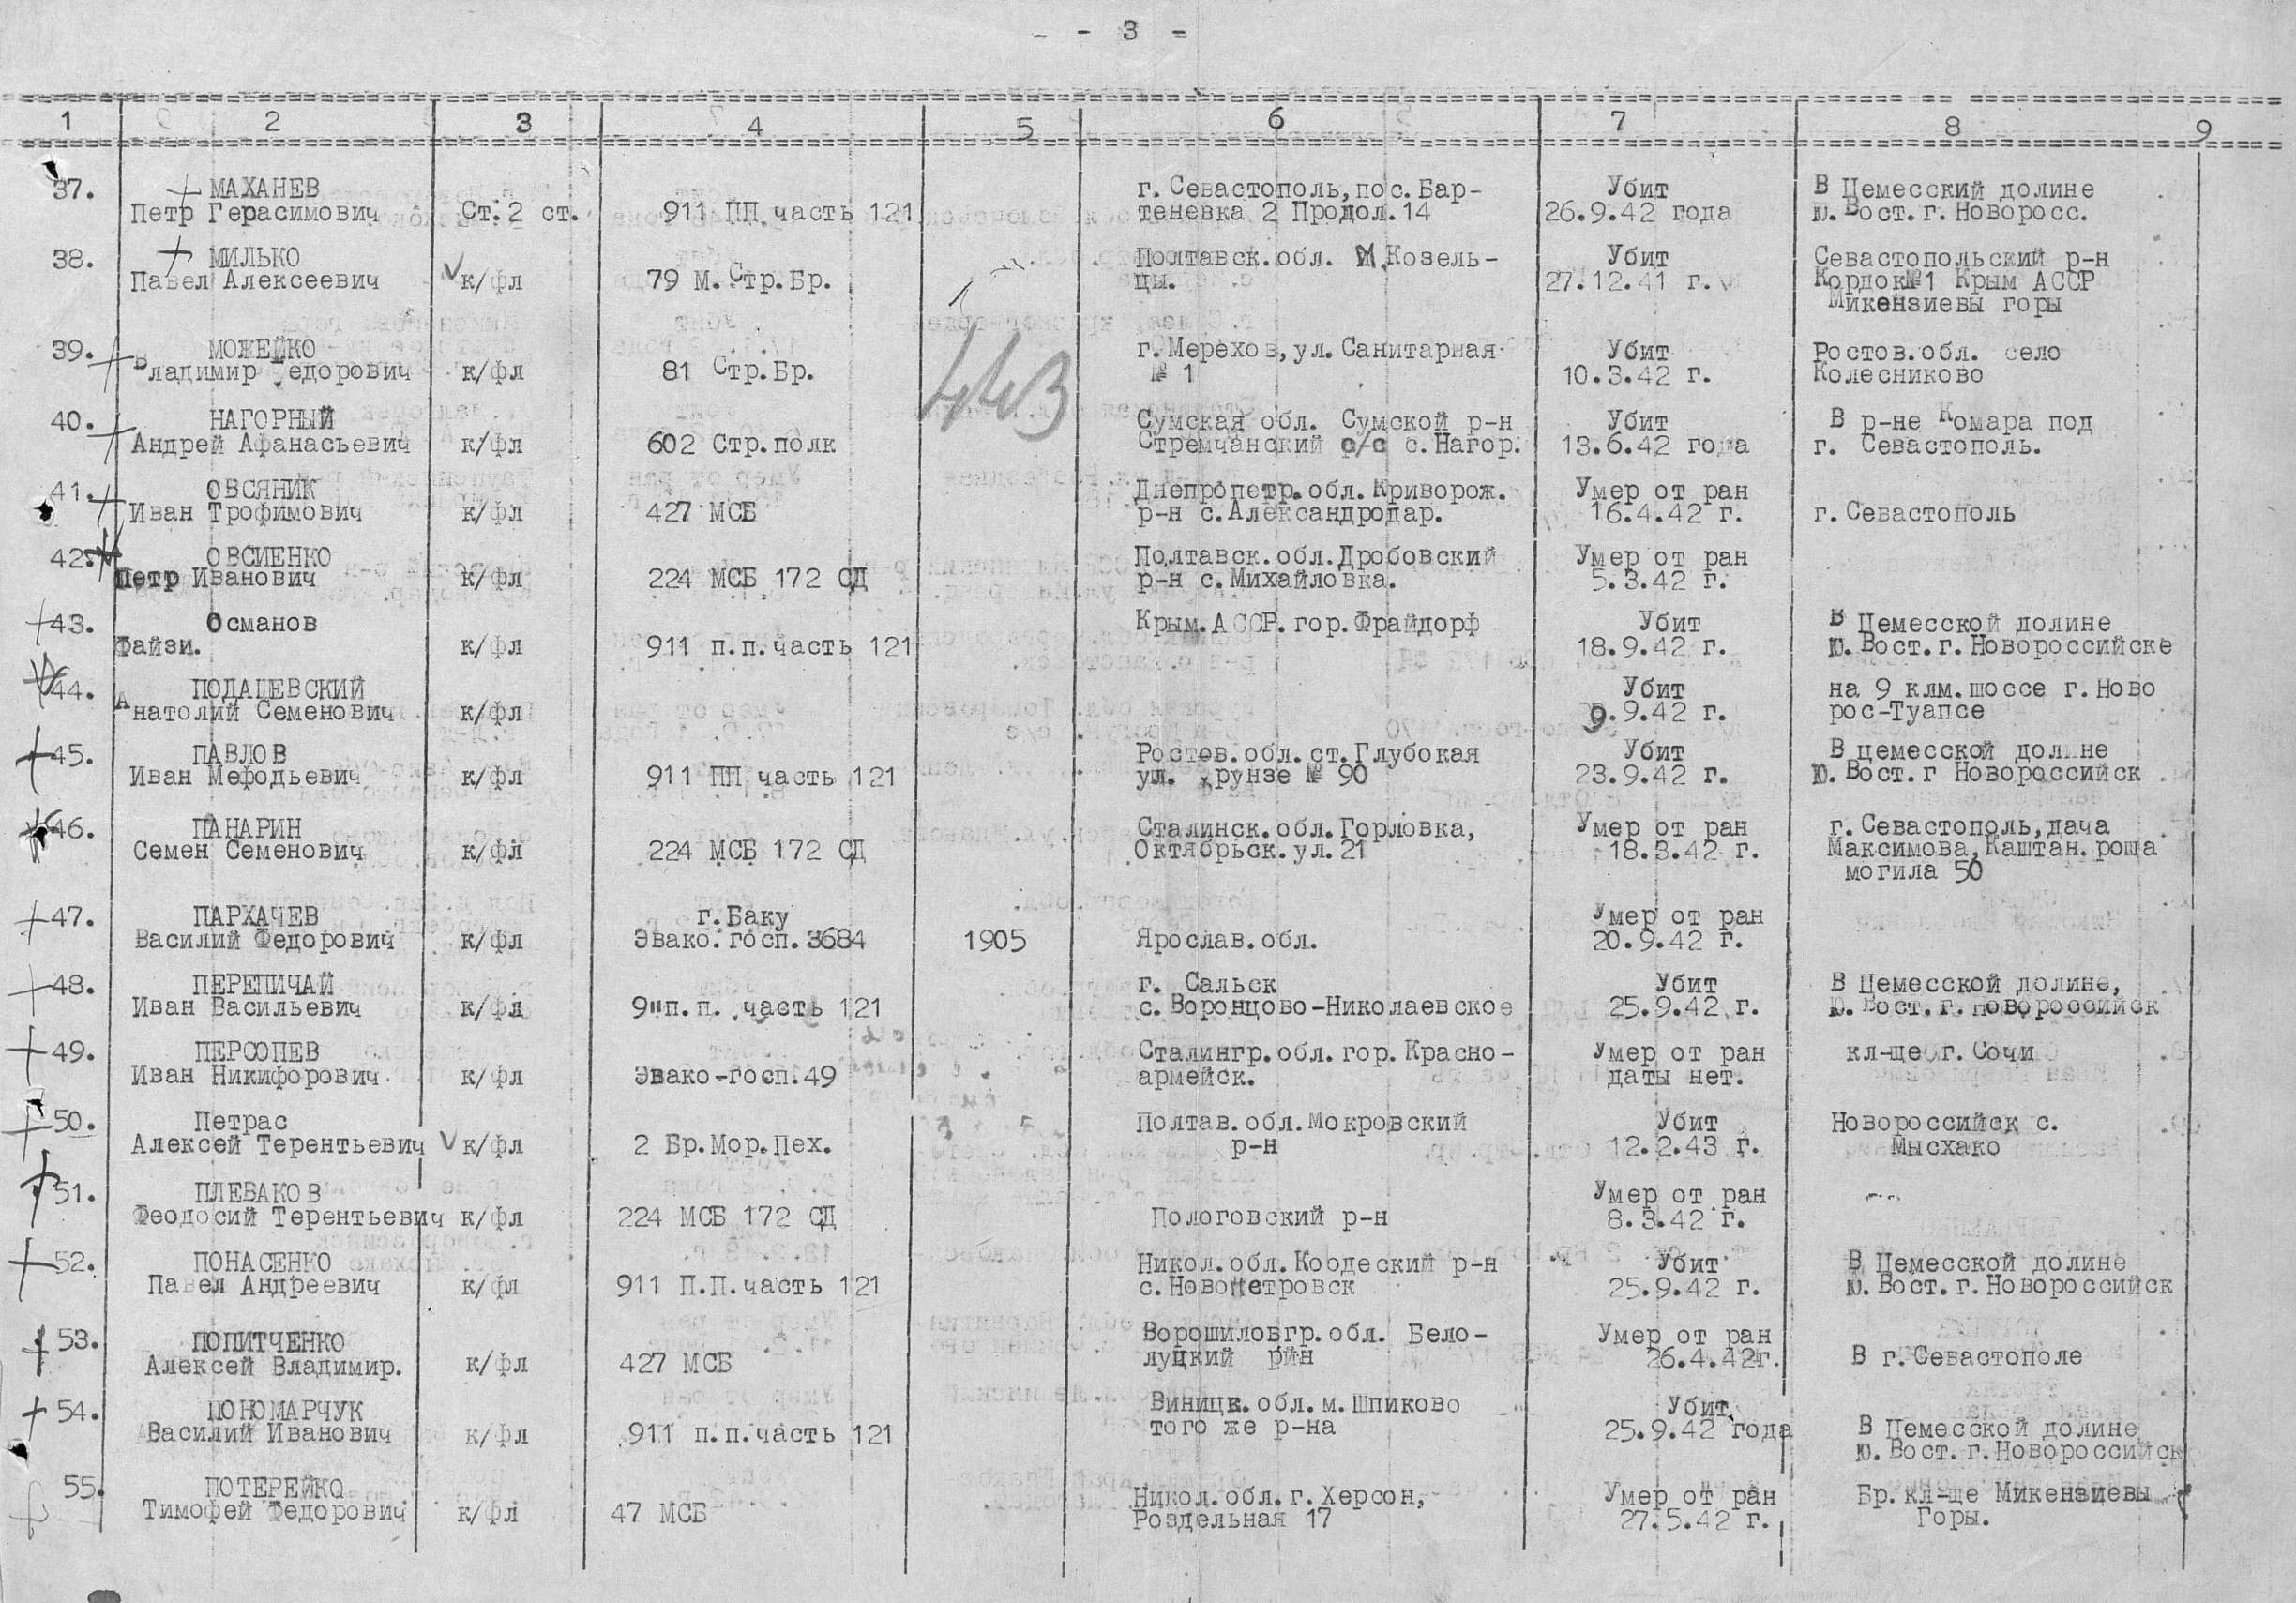 - 3 -
1 2 3 4 5 6 7 8 9
37. МАХАНЕВ г. Севастополь, пос. Бар- Убит В Цемесский долине
Петр Герасимович Ст. 2 ст. 911 ПП часть 121 теневка 2 Продол. 14 26.9.42 года Ю. Вост. г. Новоросс.
38. МИЛЬКО Полтавск. обл. М. Козель- Убит Севастопольский р-н
Павел Алексеевич к/фл 79 М. Стр. Бр. цы. 27.12.41 г. Кордок№1 Крым АССР
Микензиевы горы
39. МОЖЕЙКО г. Мерехов, ул. Санитарная Убит Ростов. обл. село
Владимир Федорович к/фл 81 Стр. Бр. № 1 10.3.42 г. Колесниково
443
40. НАГОРНЫЙ Сумская обл. Сумской р-н Убит В р-не Комара под
Андрей Афанасьевич к/фл 602 Стр. полк Стремчанский с/с с. Нагор. 13.6.42 года г. Севастополь.
41. ОВСЯНИК Днепропетр. обл. Криворож. Умер от ран
Иван Трофимович к/фл 427 МСБ р-н с. Александродар. 16.4.42 г. г. Севастополь
42. ОВСИЕНКО Полтавск. обл. Дробовский Умер от ран
Петр Иванович к/фл 224 МСБ 172 СД р-н с. Михайловка. 5.3.42 г.
43. Османов Крым. АССР. гор. Фрайдорф Убит В Цемесской долине
Файзи. к/фл 911 п.п. часть 121 18.9.42 г. Ю. Вост. г. Новороссийске
44. ПОДАЦЕВСКИЙ Убит на 9 клм. шоссе г. Ново
Анатолий Семенович к/фл .9.42 г. рос-Туапсе
45. ПАВЛОВ Ростов. обл. ст. Глубокая Убит В цемесской долине
Иван Мефодьевич к/фл 911 ПП часть 121 ул. Фрунзе № 90 23.9.42 г. Ю. Вост. г Новороссийск
46. ПАНАРИН Сталинск. обл. Горловка, Умер от ран г. Севастополь, дача
Семен Семенович к/фл 224 МСБ 172 СД Октябрьск. ул. 21 18.3.42 г. Максимова, Каштан. роща
могила 50
47. ПАРХАЧЕВ г. Баку Умер от ран
Василий Федорович к/фл Эвако. госп. 3684 1905 Ярослав. обл. 20.9.42 г.
48. ПЕРЕПИЧАЙ г. Сальск Убит В Цемесской долине,
Иван Васильевич к/фл 9"п.п. часть 121 с. Воронцово-Николаевское 25.9.42 г. Ю. Вост. г. Новороссийск
49. ПЕРСОПЕВ Сталингр. обл. гор. Красно- Умер от ран кл-ще г. Сочи
Иван Никифорович к/фл Эвако-госп. 49 армейск. даты нет.
50. Петрас Полтав. обл. Мокровский Убит Новороссийск с.
Алексей Терентьевич к/фл 2 Бр. Мор. Пех. р-н 12.2.43 г. Мысхако
51. ПЛЕВАКОВ Умер от ран
Феодосий Терентьевич к/фл 224 МСБ 172 СД Пологовский р-н 8.3.42 г.
52. ПОНАСЕНКО Никол. обл. Коодеский р-н Убит В Цемесской долине
Павел Андреевич к/фл 911 П.П. часть 121 с. Новопетровск 25.9.42 г. Ю. Вост. г. Новороссийск
53. ПОПИТЧЕНКО Ворошиловгр. обл. Бело- Умер от ран
Алексей Владимир. к/фл 427 МСБ луцкий рйн 26.4.42г. В г. Севастополе
54. ПОНОМАРЧУК Виницк. обл. м. Шпиково Убит
Василий Иванович к/фл 911 п.п. часть 121 того же р-на 25.9.42 года В Цемесской долине
Ю. Вост. г. Новороссийск
55. ПОТЕРЕЙКО Никол. обл. г. Херсон, Умер от ран Бр. кл-ще Микензиевы
Тимофей Федорович к/фл 47 МСБ Роздельная 17 27.5.42 г. Горы.